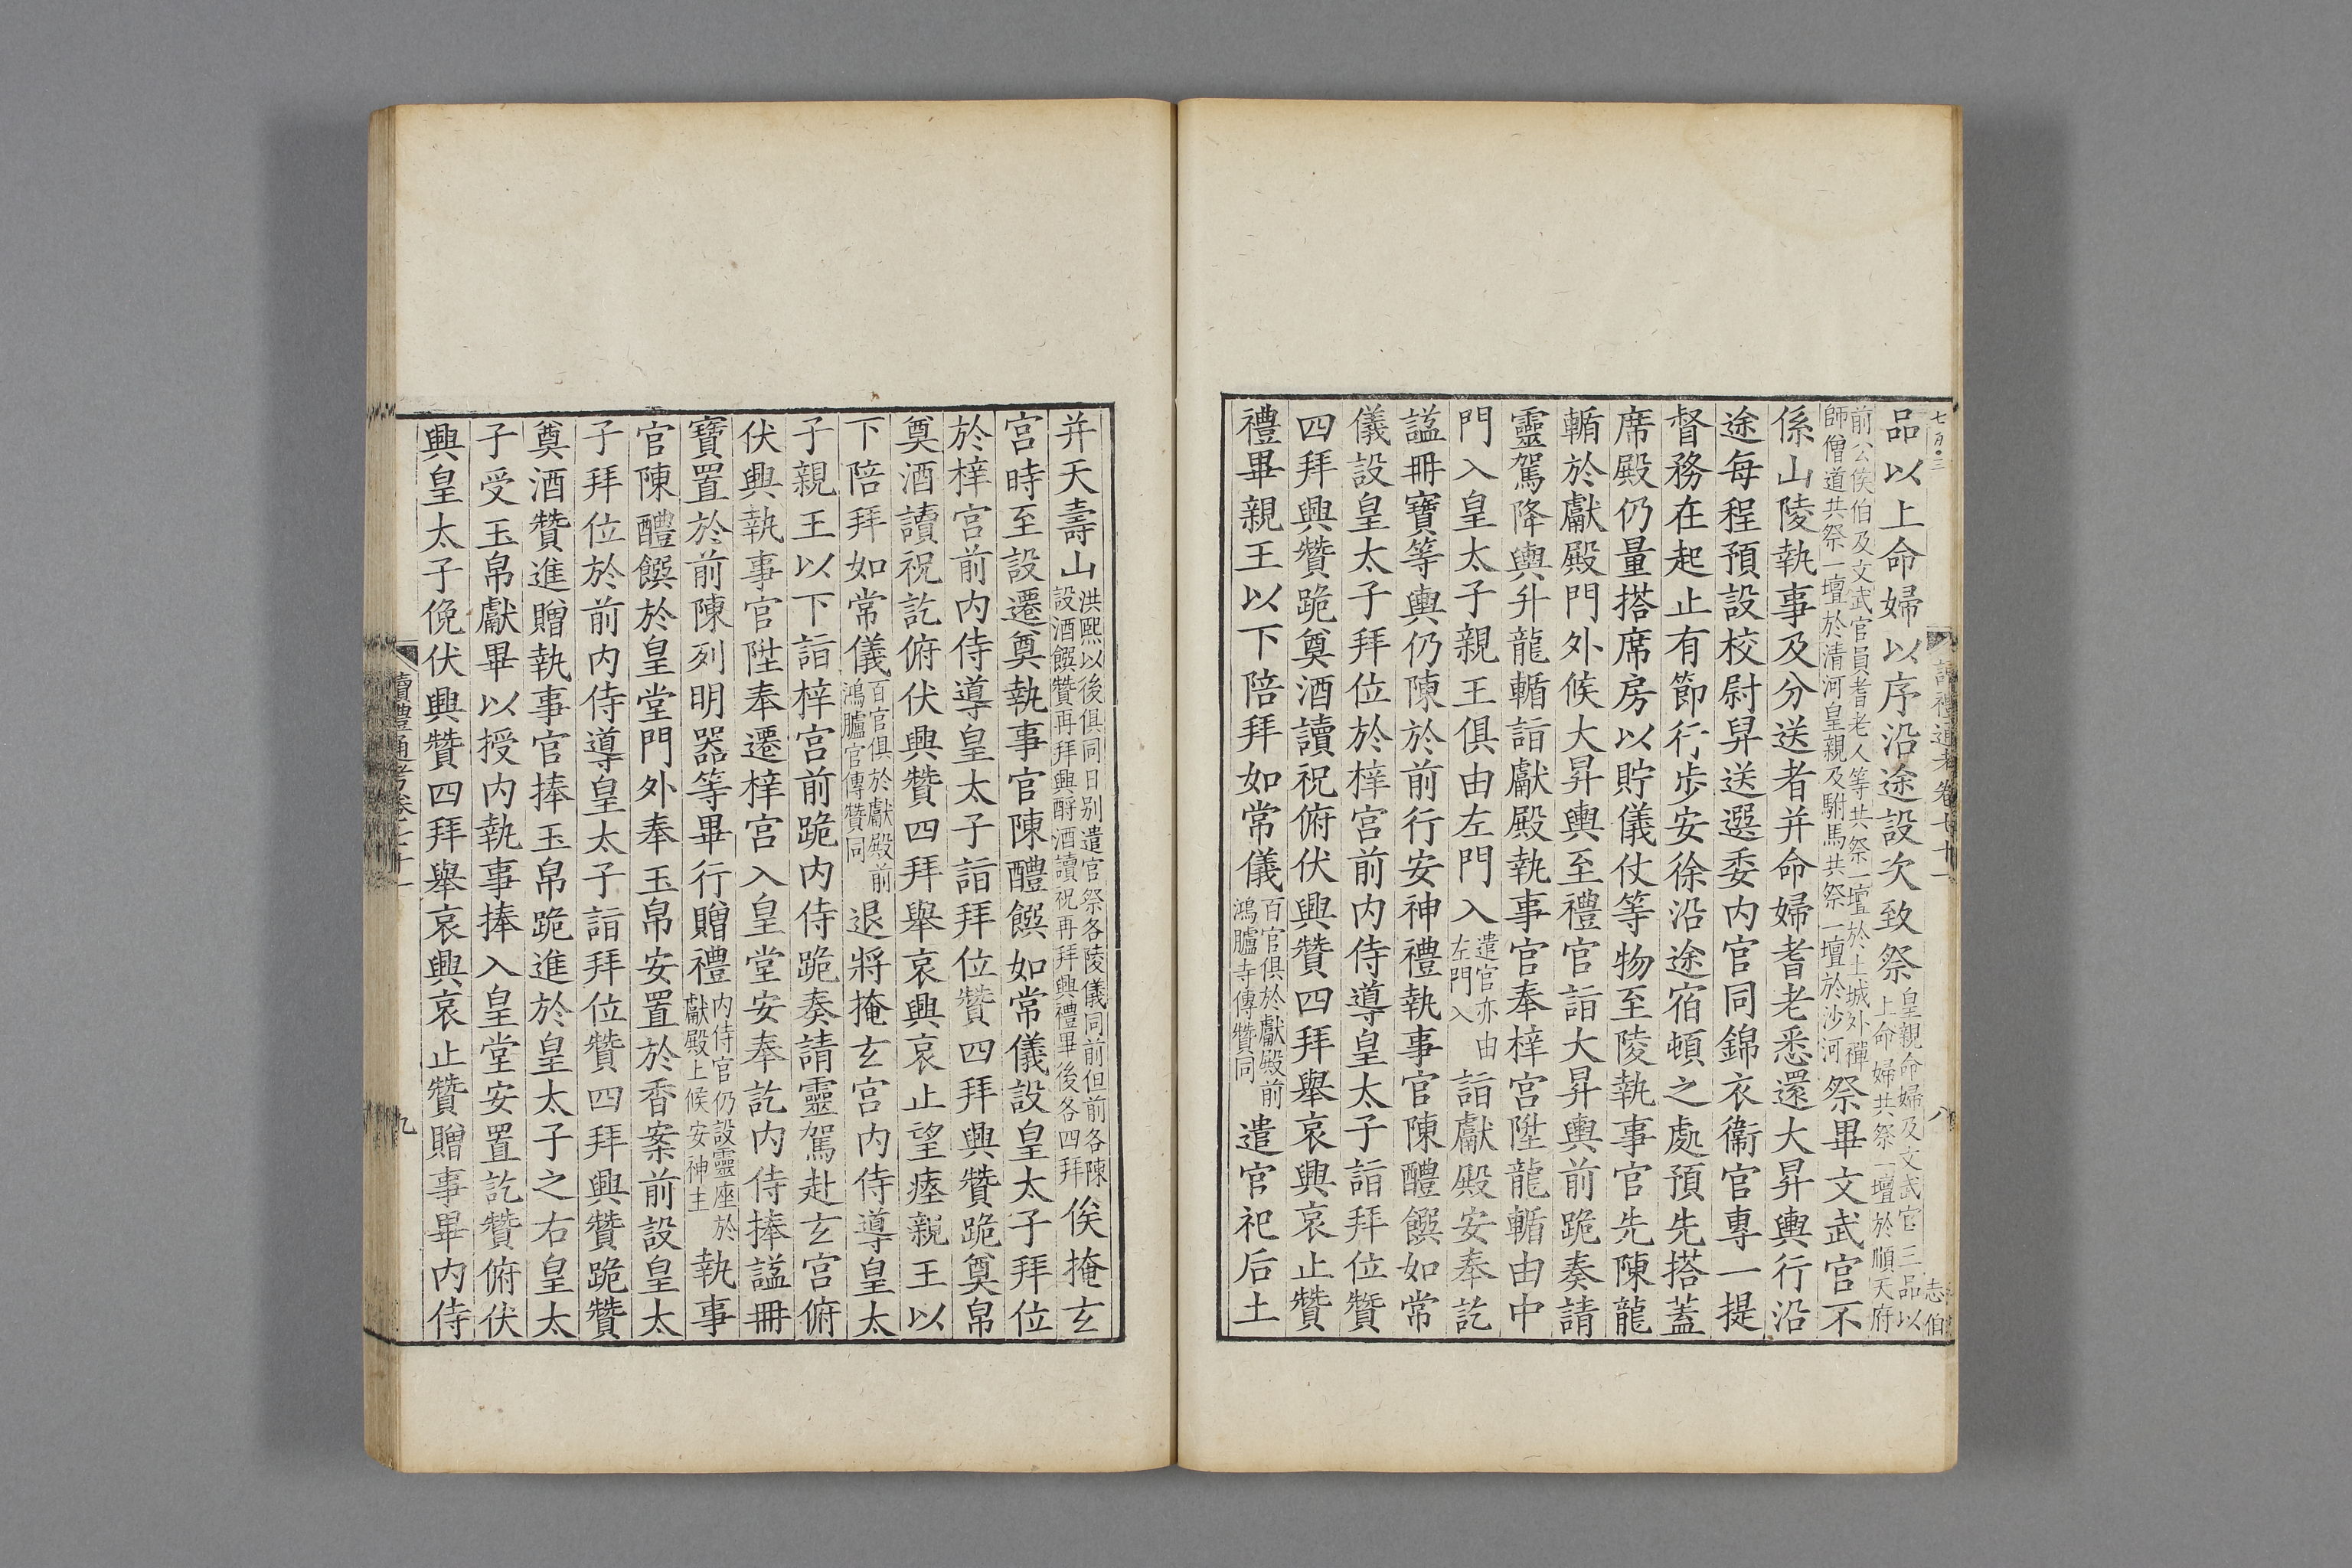 品以上命婦以序沿途設次致祭皇親命婦及文武官三品以上命婦共祭一壇於順天府
前公侯伯及文武官員耆老人等共祭一壇於土城外禪師僧道共祭一壇於清河皇親及駙馬共祭一壇於沙河祭畢文武官不
係山陵執事及分送者并命婦耆老悉還大昇輿行沿
途每程預設校尉昇送選委内官同錦衣衞官專一提
督務在起止有節行步安徐沿途宿頓之處預先搭蓋
席殿仍量搭席房以貯儀仗等物至陵執事官先陳龍
輴於獻殿門外候大昇輿至禮官詣大昇輿前跪奏請
靈駕降輿升龍輴詣獻殿執事官奉梓宮陞龍輴由中
門入皇太子親王俱由左門入遣官亦由左門入詣獻殿安奉訖
謚冊寶等輿仍陳於前行安神禮執事官陳醴饌如常
儀設皇太子拜位於梓宮前内侍導皇太子詣拜位贊
四拜興贊跪奠酒讀祝俯伏興贊四拜舉哀興哀止贊
禮畢親王以下陪拜如常儀百官俱於獻殿前鴻臚寺傳贊同遣官祀后土
并天壽山洪熙以後俱同日別遣官祭各陵儀同前但前各陳設酒饌贊再拜興酹酒讀祝再拜興禮畢後各四拜俟掩玄
宮時至設遷奠執事官陳醴饌如常儀設皇太子拜位
於梓宮前内侍導皇太子詣拜位贊四拜興贊跪奠帛
奠酒讀祝訖俯伏興贊四拜舉哀興哀止望瘞親王以
下陪拜如常儀百官俱於獻殿前鴻臚官傳贊同退將掩玄宮内侍導皇太
子親王以下詣梓宮前跪内侍跪奏請靈駕赴玄宮俯
伏興執事官陞奉遷梓宮入皇堂安奉訖内侍捧謚冊
寶置於前陳列明器等畢行贈禮内侍官仍設靈座於獻殿上候安神主執事
官陳醴饌於皇堂門外奉玉帛安置於香案前設皇太
子拜位於前内侍導皇太子詣拜位贊四拜興贊跪贊
奠酒贊進贈執事官捧玉帛跪進於皇太子之右皇太
子受玉帛獻畢以授内執事捧入皇堂安置訖贊俯伏
興皇太子俛伏興贊四拜舉哀興哀止贊贈事畢内侍
讀禮通考卷七十一
九